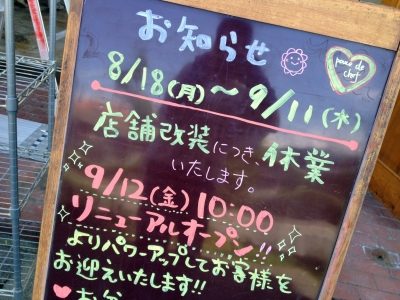 お知らせ
pause de
chef
8/18(月)～9/11(水)
店舗改装につき、休業
いたします。
9/12(金)10:00
リニューアルオープン!!
よりパワーアップしてお客様を
お迎えいたします!!